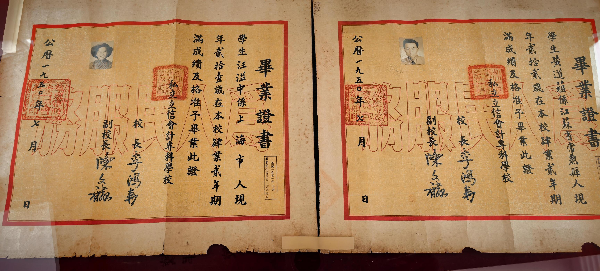 畢業證書
學生汪滋中係上海市人現
年貳拾壹歲在本校肄業貳年期
滿成績及格准予畢業此證
私立立信會計專科學校
校長李鴻壽
副校長陳文麟
公曆一九五〇年七月 日
畢業證書
學生黃道 係江蘇省常熟縣人現
年貳拾貳歲在本校肄業貳年期
滿成績及格准予畢業此證
私立立信會計專科學校
校長李鴻壽
副校長陳文麟
公曆一九五〇年七月 日